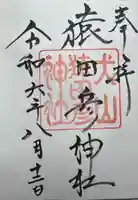 奉拝
猿田彦神社
犬山
猿田彦
神社
令和六年八月十二日